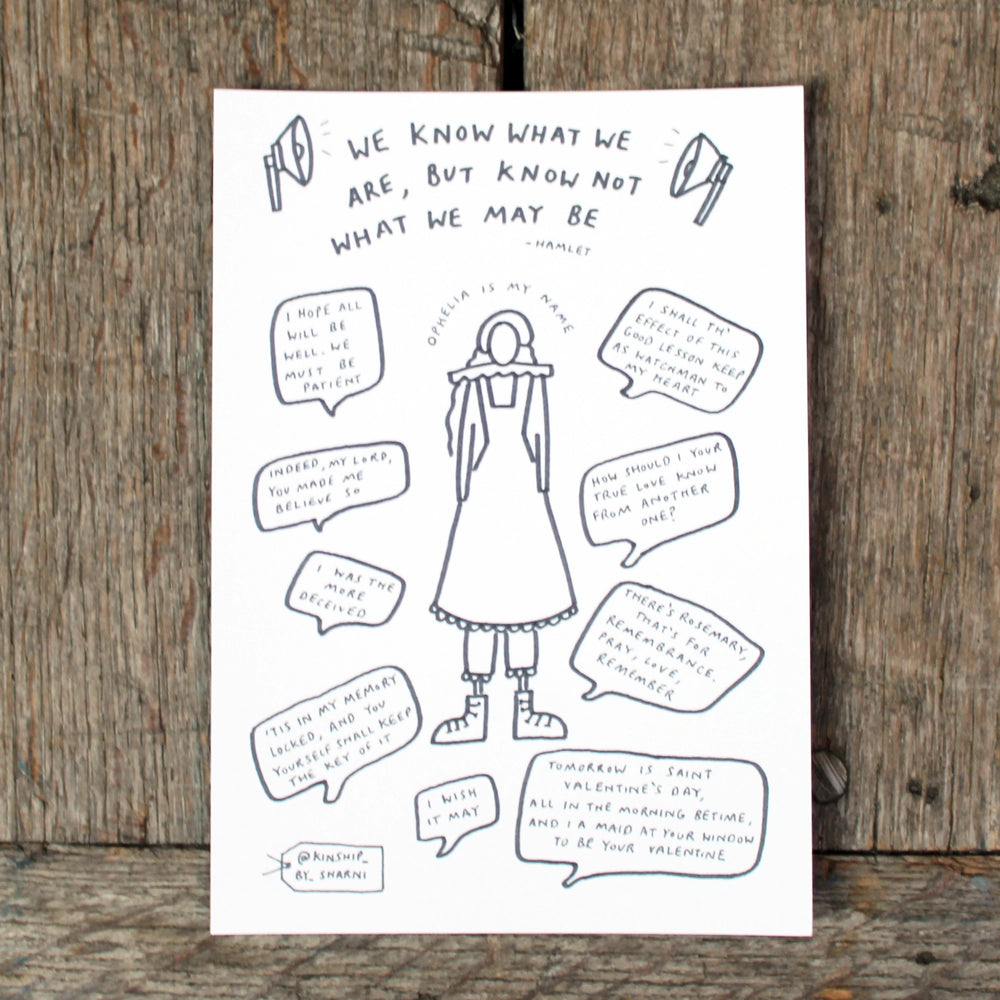 WE KNOW WHAT WE
ARE, BUT KNOW NOT
WHAT WE MAY BE
- HAMLET
OPHELIA IS MY NAME
I HOPE ALL
WILL BE
WELL. WE
MUST BE
PATIENT
I SHALL TH'
EFFECT OF THIS
GOOD LESSON KEEP
AS WATCHMAN TO
MY HEART
INDEED, MY LORD,
YOU MADE ME
BELIEVE SO
HOW SHOULD I YOUR
TRUE LOVE KNOW
FROM ANOTHER
ONE?
I WAS THE
MORE
DECEIVED
THERE'S ROSEMARY,
THAT'S FOR
REMEMBRANCE.
PRAY, LOVE,
REMEMBER
'TIS IN MY MEMORY
LOCKED, AND YOU
YOURSELF SHALL KEEP
THE KEY OF IT
I WISH
IT MAY
TOMORROW IS SAINT
VALENTINE'S DAY,
ALL IN THE MORNING BETIME,
AND I A MAID AT YOUR WINDOW
TO BE YOUR VALENTINE
@KINSHIP_
BY_SHARNI